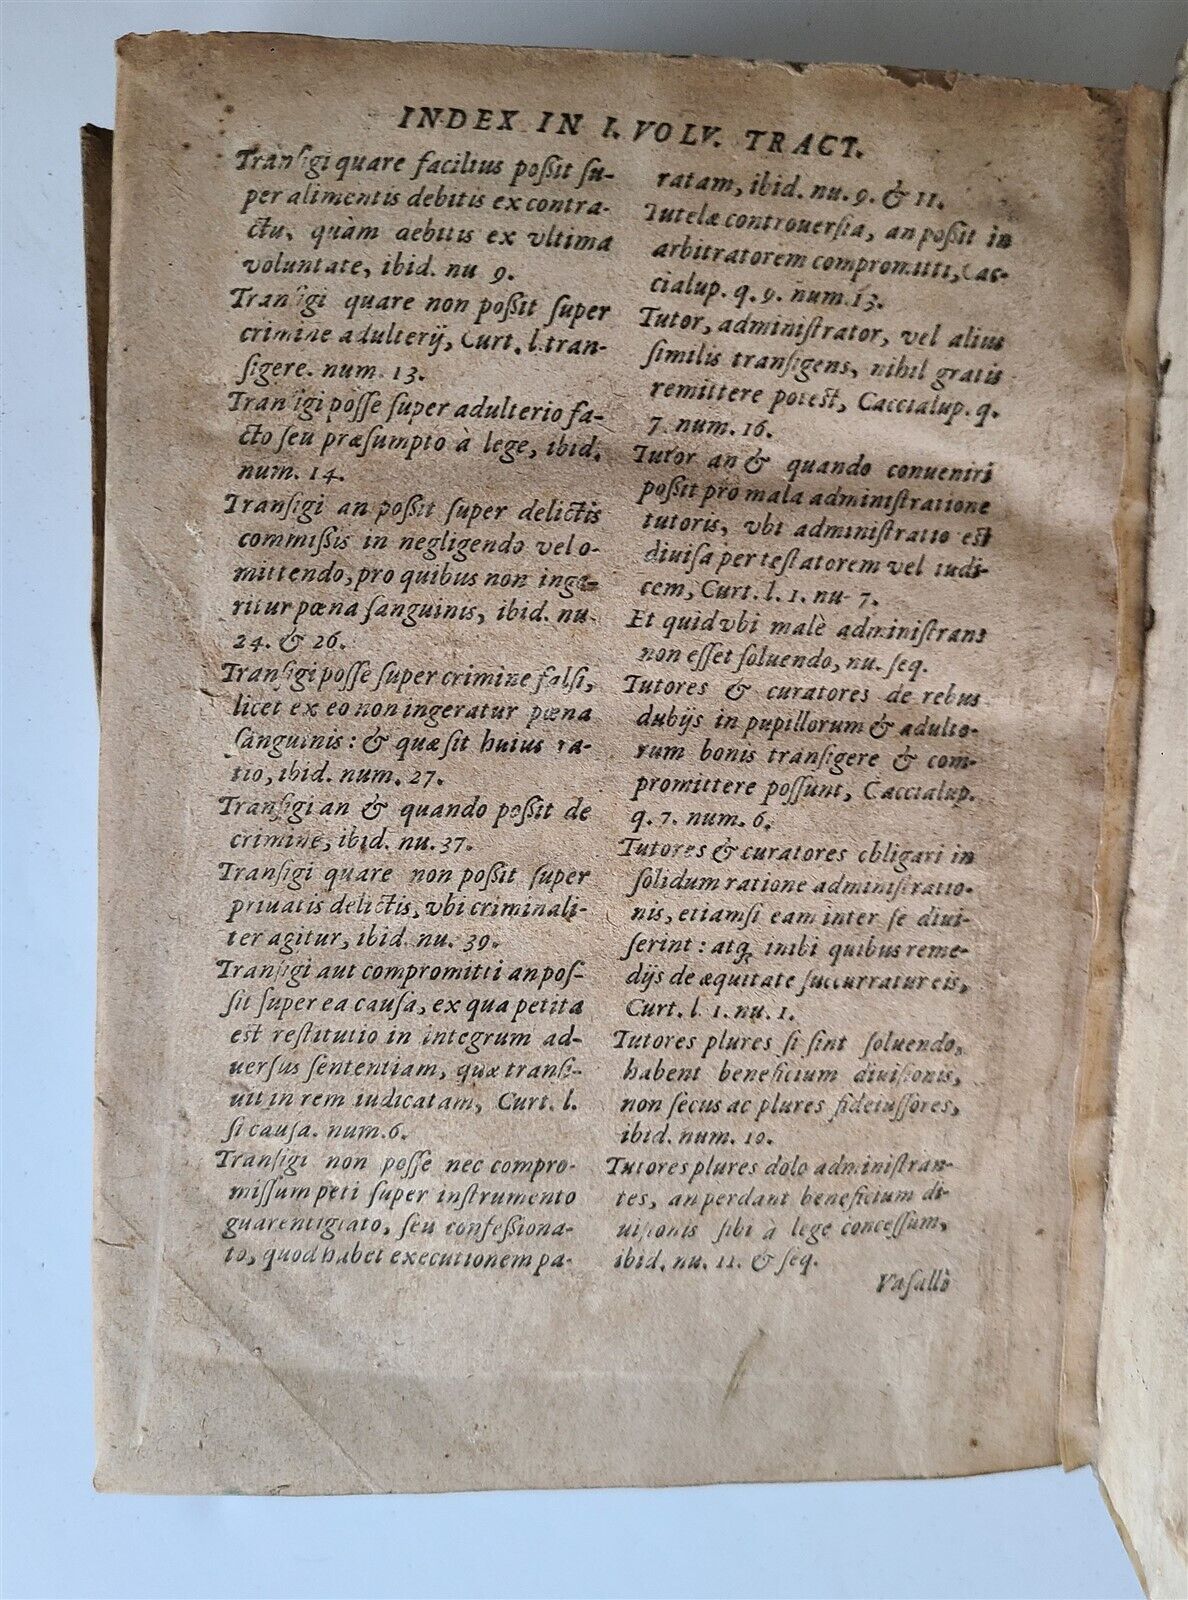 INDEX IN I. VOLV. TRACT.
Tranſigi quare facilius poßit ſu-
per alimentis debitis ex contra-
ctu, quàm debitis ex vltima
voluntate, ibid. nu 9.
Tranſigi quare non poßit ſuper
crimine adulterij, Curt. l. tran-
ſigere. num. 13.
Tranſigi poſſe ſuper adulterio fa-
cto ſeu præſumpto à lege, ibid.
num. 14.
Tranſigi an poßit ſuper delictis
commißis in negligendo vel o-
mittendo, pro quibus non inge-
ritur pœna ſanguinis, ibid. nu.
24. & 26.
Tranſigi poſſe ſuper crimine falſi,
licet ex eo non ingeratur pœna
ſanguinis: & quæ ſit huius ra-
tio, ibid. num. 27.
Tranſigi an & quando poßit de
crimine, ibid. nu. 37.
Tranſigi quare non poßit ſuper
priuatis delictis, vbi criminali-
ter agitur, ibid. nu. 39.
Tranſigi aut compromitti an poſ-
ſit ſuper ea cauſa, ex qua petita
est reſtitutio in integrum ad-
uerſus ſententiam, quæ tranſi-
uit in rem iudicatam, Curt. l.
ſi cauſa. num. 6.
Tranſigi non poſſe nec compro-
miſſum peti ſuper inſtrumento
guarentigiato, ſeu confeßiona-
to, quod habet executionem pa-
ratam, ibid. nu. 9. & 11.
Tutelæ controuerſia, an poßit in
arbitratorem compromitti, Cac-
cialup. q. 9. num. 13.
Tutor, adminiſtrator, vel alius
ſimilis tranſigens, nihil gratis
remittere potest, Caccialup. q.
7. num. 16.
Tutor an & quando conueniri
poßit pro mala adminiſtratione
tutoris, vbi adminiſtratio est
diuiſa per teſtatorem vel iudi-
cem, Curt. l. 1. nu. 7.
Et quid vbi malè adminiſtrans
non eſſet ſoluendo, nu. ſeq.
Tutores & curatores de rebus
dubijs in pupillorum & adulto-
rum bonis tranſigere & com-
promittere poſſunt, Caccialup.
q. 7. num. 6.
Tutores & curatores obligari in
ſolidum ratione adminiſtratio-
nis, etiamſi eam inter ſe diui-
ſerint: atq; inibi quibus reme-
dijs de æquitate ſuccurratur eis,
Curt. l. 1. nu. 1.
Tutores plures ſi ſint ſoluendo,
habent beneficium diuiſionis,
non ſecus ac plures fideiuſſores,
ibid. num. 10.
Tutores plures dolo adminiſtran-
tes, an perdant beneficium di-
uiſionis ſibi à lege conceſſum,
ibid. nu. 11. & ſeq.
Vaſallò